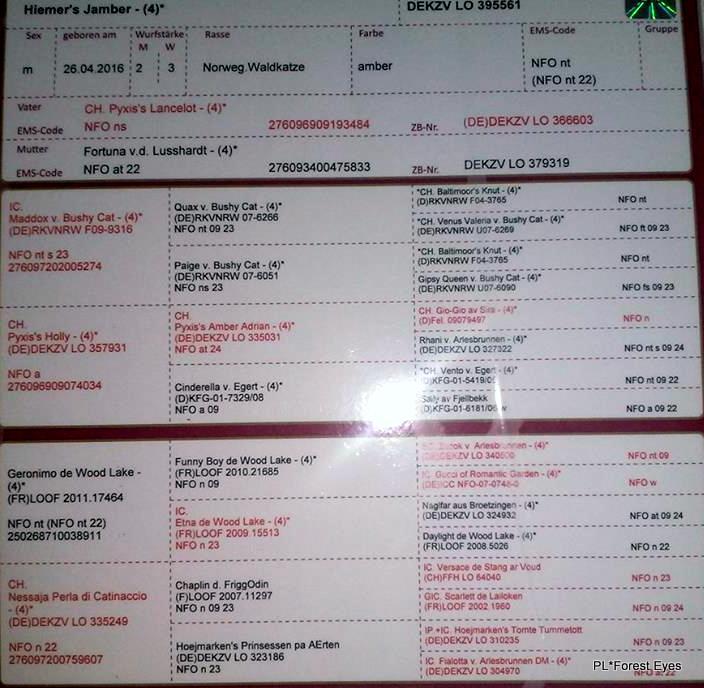 Hiemer's Jamber - (4)* DEKZV LO 395561
Sex geboren am Wurfstärke Rasse Farbe EMS-Code Gruppe
M W
m 26.04.2016 2 3 Norweg.Waldkatze amber NFO nt
(NFO nt 22)
Vater CH. Pyxis's Lancelot - (4)*
EMS-Code NFO ns 276096909193484 ZB-Nr. (DE)DEKZV LO 366603
Mutter Fortuna v.d. Lusshardt - (4)*
EMS-Code NFO at 22 276093400475833 ZB-Nr. DEKZV LO 379319
IC.
Maddox v. Bushy Cat - (4)*
(DE)RKVNRW F09-9316
NFO nt s 23
276097202005274
CH.
Pyxis's Holly - (4)*
(DE)DEKZV LO 357931
NFO a
276096909074034
Quax v. Bushy Cat - (4)*
(DE)RKVNRW 07-6266
NFO nt 09 23
Paige v. Bushy Cat - (4)*
(DE)RKVNRW 07-6051
NFO ns 23
CH.
Pyxis's Amber Adrian - (4)*
(DE)DEKZV LO 335031
NFO at 24
Cinderella v. Egert - (4)*
(D)KFG-01-7329/08
NFO a 09
*CH. Baltimoor's Knut - (4)*
(D)RKVNRW F04-3765 NFO nt
*CH. Venus Valeria v. Bushy Cat - (4)*
(DE)RKVNRW U07-6269 NFO ft 09 23
*CH. Baltimoor's Knut - (4)*
(D)RKVNRW F04-3765 NFO nt
Gipsy Queen v. Bushy Cat - (4)*
(DE)RKVNRW U07-6090 NFO fs 09 23
CH. Gio-Gio av Sira - (4)*
(D)Fel. 09079497 NFO n
Rhani v. Arlesbrunnen - (4)*
(DE)DEKZV LO 327322 NFO nt s 09 24
*CH. Vento v. Egert - (4)*
(D)KFG-01-5419/05 NFO nt 09 22
Sally av Fjellbekk
(D)KFG-01-6181/06 NFO a 09 22
Geronimo de Wood Lake -
(4)*
(FR)LOOF 2011.17464
NFO nt (NFO nt 22)
250268710038911
CH.
Nessaja Perla di Catinaccio
- (4)*
(DE)DEKZV LO 335249
NFO n 22
276097200759607
Funny Boy de Wood Lake - (4)*
(FR)LOOF 2010.21685
NFO n 09
IC.
Etna de Wood Lake - (4)*
(FR)LOOF 2009.15513
NFO n 23
Chaplin d. FriggOdin
(F)LOOF 2007.11297
NFO n 09 23
Hoejmarken's Prinsessen pa AErten
(DE)DEKZV LO 323186
NFO n 23
v. Arlesbrunnen - (4)*
(DE)DEKZV LO NFO nt 09
Gucci of Romantic Garden - (4)*
(DE)ICC NFO-07-0748-0 NFO w
Naglfar aus Broetzingen - (4)*
(DE)DEKZV LO 324932 NFO at 09 24
Daylight de Wood Lake - (4)*
(FR)LOOF 2008.5026 NFO n 22
IC. Versace de Stang ar Voud
(CH)FFH LO 64040 NFO n 23
GIC. Scarlett de Lailoken
(FR)LOOF 2002.1960 NFO n 09 24
IP +IC. Hoejmarken's Tomte Tummetott
(DE)DEKZV LO 310235 NFO n 09 23
IC. Fialotta v. Arlesbrunnen DM - (4)*
(DE)DEKZV LO 304970 22
PL*Forest Eyes